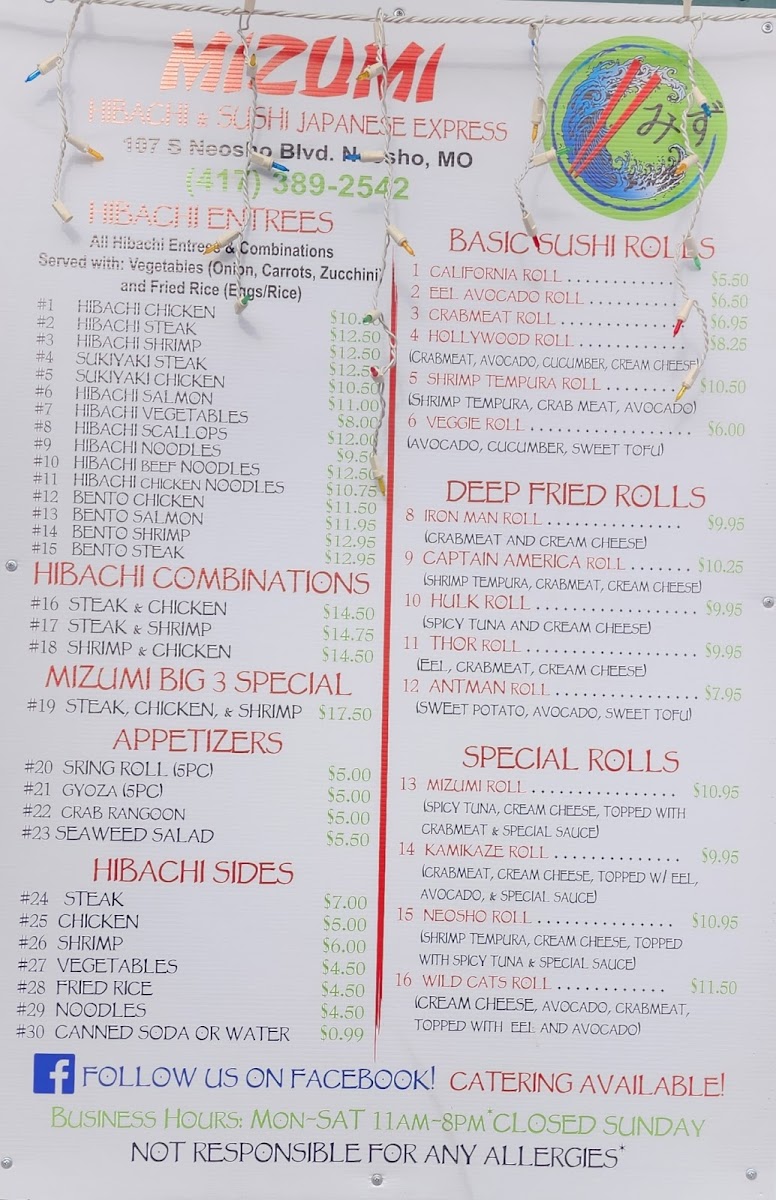 MIZUMI
HIBACHI & SUSHI JAPANESE EXPRESS
107 S Neosho Blvd. Neosho, MO
(417) 389-2542
みず
HIBACHI ENTREES
All Hibachi Entrees & Combinations
Served with: Vegetables (Onion, Carrots, Zucchini)
and Fried Rice (Eggs/Rice)
#1 HIBACHI CHICKEN
#2 HIBACHI STEAK $12.50
#3 HIBACHI SHRIMP $12.50
#4 SUKIYAKI STEAK $12.50
#5 SUKIYAKI CHICKEN $10.50
#6 HIBACHI SALMON $11.00
#7 HIBACHI VEGETABLES $8.00
#8 HIBACHI SCALLOPS $12.00
#9 HIBACHI NOODLES $9.50
#10 HIBACHI BEEF NOODLES $12.50
#11 HIBACHI CHICKEN NOODLES $10.75
#12 BENTO CHICKEN $11.50
#13 BENTO SALMON $11.95
#14 BENTO SHRIMP $12.95
#15 BENTO STEAK $12.95
HIBACHI COMBINATIONS
#16 STEAK & CHICKEN $14.50
#17 STEAK & SHRIMP $14.75
#18 SHRIMP & CHICKEN $14.50
MIZUMI BIG 3 SPECIAL
#19 STEAK, CHICKEN, & SHRIMP $17.50
APPETIZERS
#20 SRING ROLL (5PC) $5.00
#21 GYOZA (5PC) $5.00
#22 CRAB RANGOON $5.00
#23 SEAWEED SALAD $5.50
HIBACHI SIDES
#24 STEAK $7.00
#25 CHICKEN $5.00
#26 SHRIMP $6.00
#27 VEGETABLES $4.50
#28 FRIED RICE $4.50
#29 NOODLES $4.50
#30 CANNED SODA OR WATER $0.99
BASIC SUSHI ROLLS
1 CALIFORNIA ROLL ............ $5.50
2 EEL AVOCADO ROLL .......... $6.50
3 CRABMEAT ROLL ............. $6.95
4 HOLLYWOOD ROLL ........... $8.25
(CRABMEAT, AVOCADO, CUCUMBER, CREAM CHEESE)
5 SHRIMP TEMPURA ROLL ......... $10.50
(SHRIMP TEMPURA, CRAB MEAT, AVOCADO)
6 VEGGIE ROLL .................. $6.00
(AVOCADO, CUCUMBER, SWEET TOFU)
DEEP FRIED ROLLS
8 IRON MAN ROLL ............... $9.95
(CRABMEAT AND CREAM CHEESE)
9 CAPTAIN AMERICA ROLL ....... $10.25
(SHRIMP TEMPURA, CRABMEAT, CREAM CHEESE)
10 HULK ROLL ................. $9.95
(SPICY TUNA AND CREAM CHEESE)
11 THOR ROLL .................. $9.95
(EEL, CRABMEAT, CREAM CHEESE)
12 ANTMAN ROLL ............... $7.95
(SWEET POTATO, AVOCADO, SWEET TOFU)
SPECIAL ROLLS
13 MIZUMI ROLL ................ $10.95
(SPICY TUNA, CREAM CHEESE, TOPPED WITH
CRABMEAT & SPECIAL SAUCE)
14 KAMIKAZE ROLL ............. $9.95
(CRABMEAT, CREAM CHEESE, TOPPED W/ EEL,
AVOCADO, & SPECIAL SAUCE)
15 NEOSHO ROLL ............... $10.95
(SHRIMP TEMPURA, CREAM CHEESE, TOPPED
WITH SPICY TUNA & SPECIAL SAUCE)
16 WILD CATS ROLL ............ $11.50
(CREAM CHEESE, AVOCADO, CRABMEAT,
TOPPED WITH EEL AND AVOCADO)
f FOLLOW US ON FACEBOOK! CATERING AVAILABLE!
BUSINESS HOURS: MON-SAT 11AM-8PM*CLOSED SUNDAY
NOT RESPONSIBLE FOR ANY ALLERGIES*